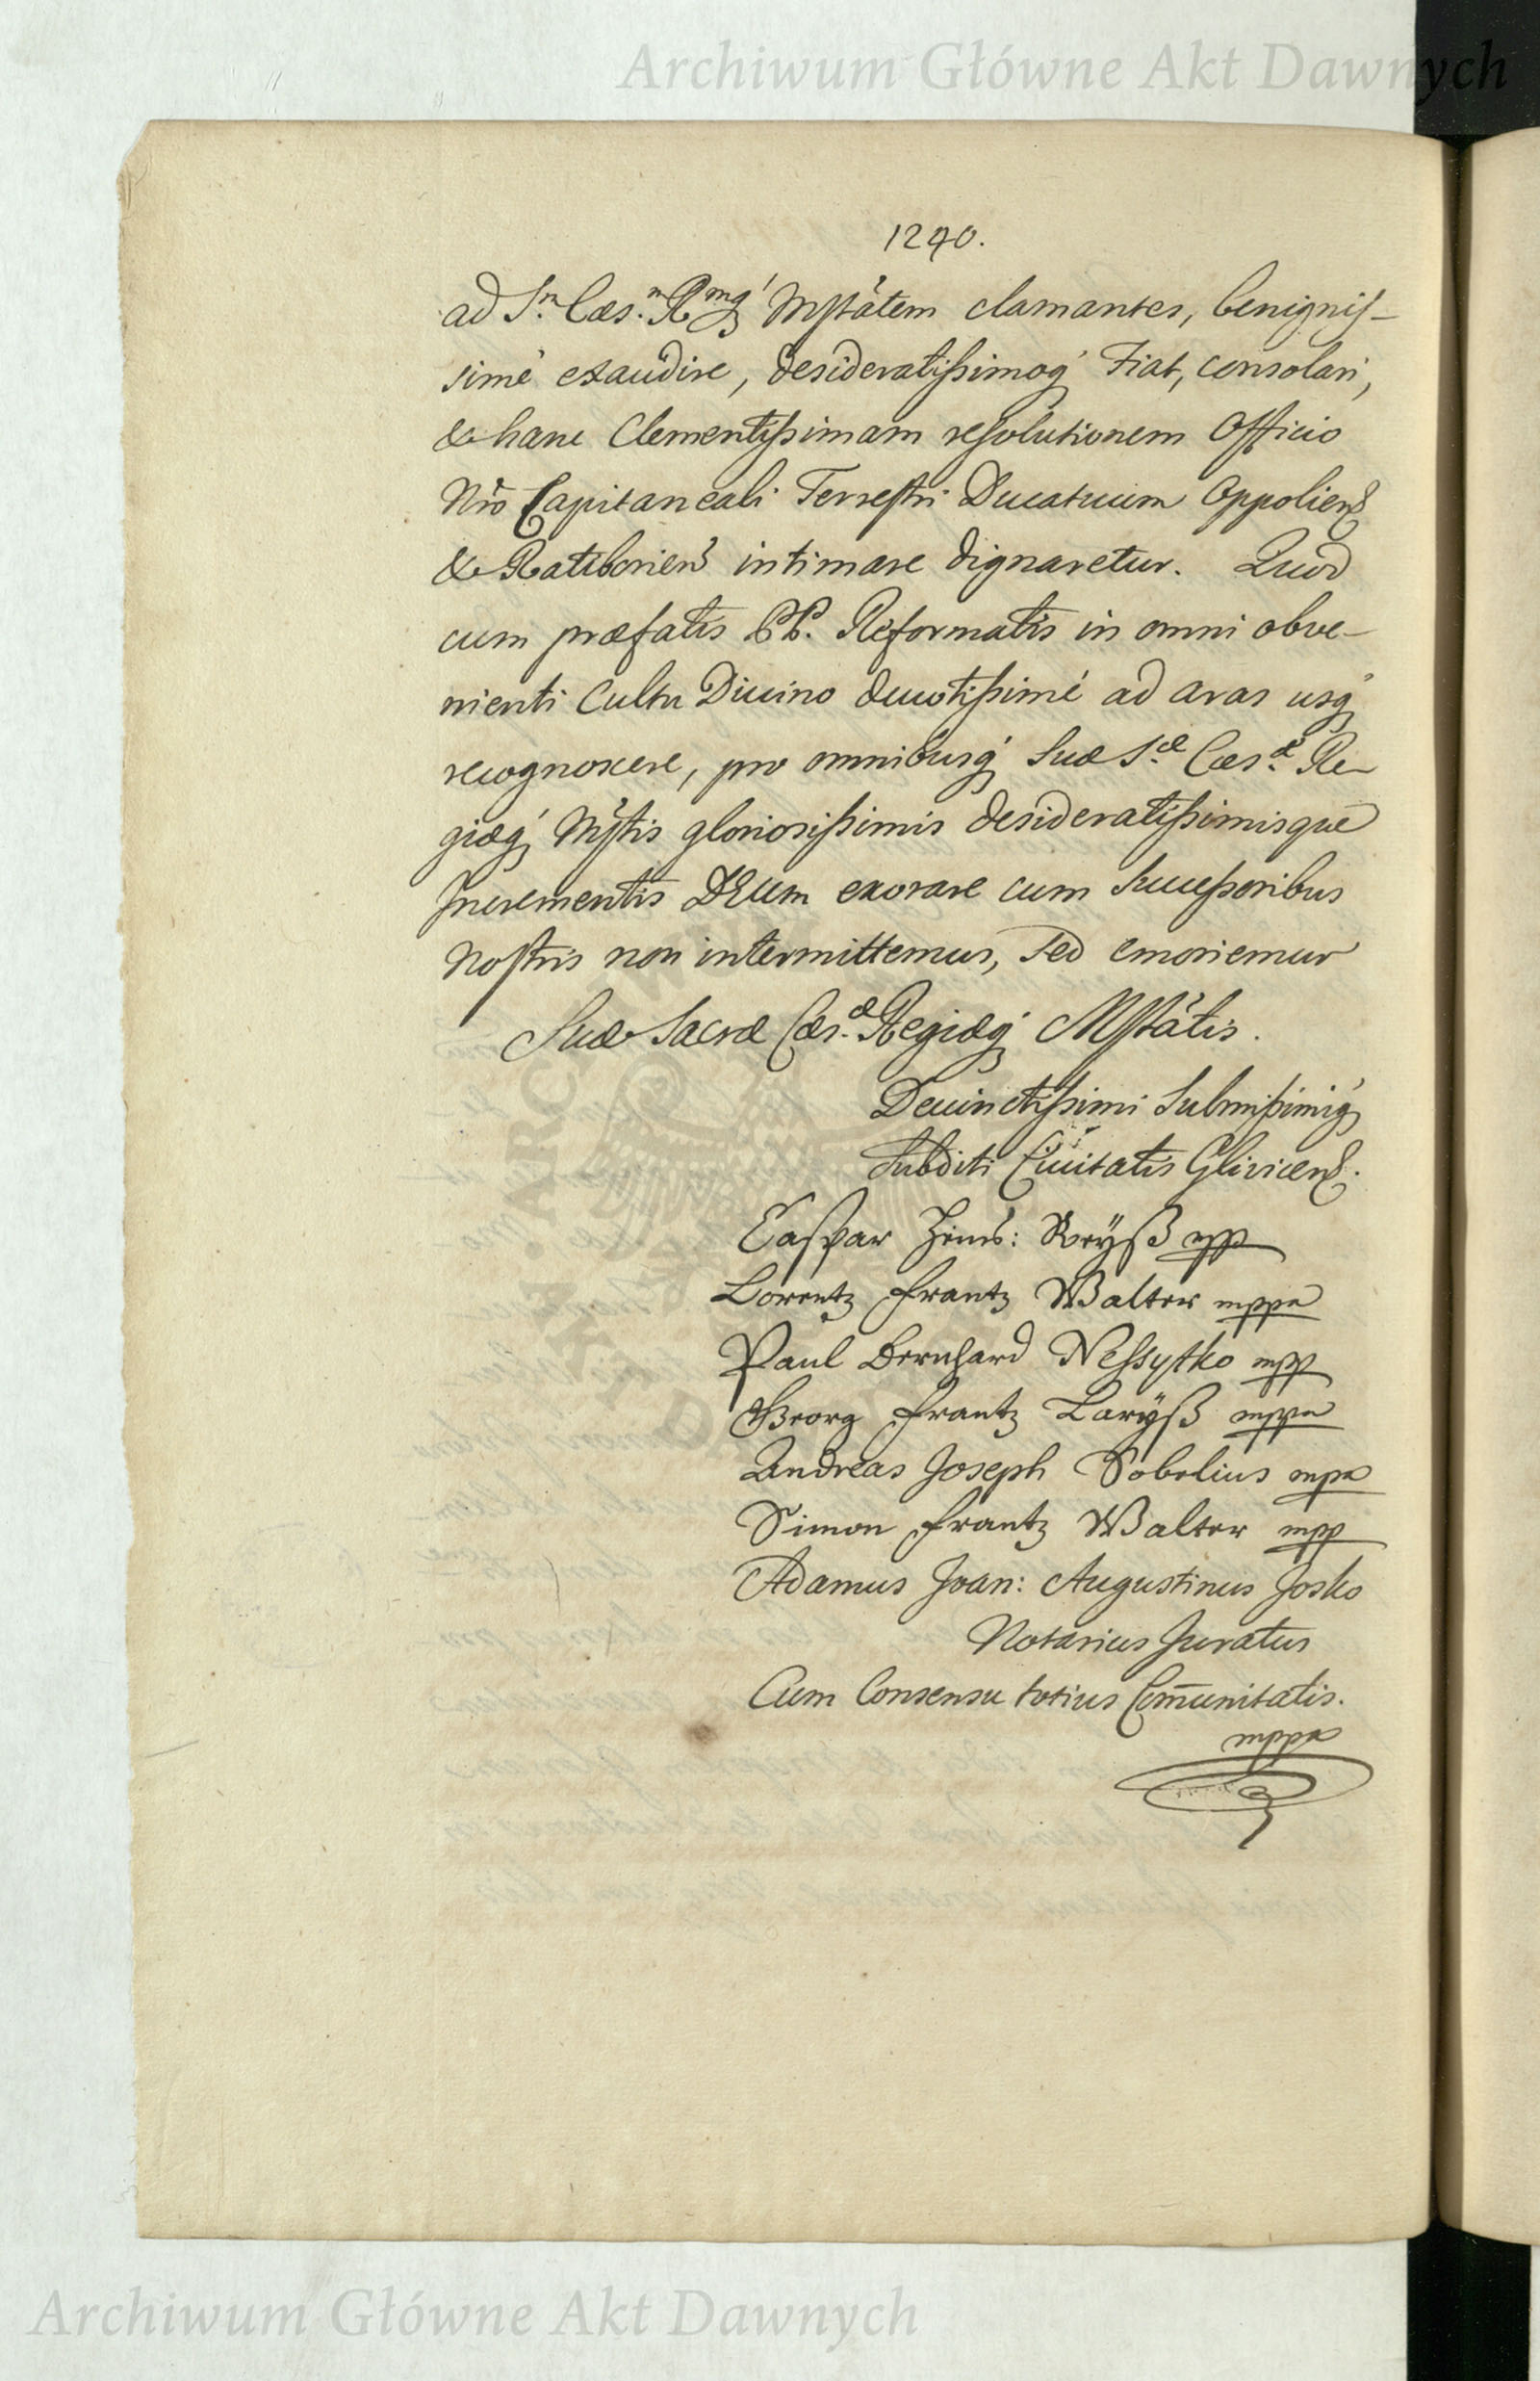 Archiwum Główne Akt Dawnych
1290.
ad S.ᵐ Cæs.ᵐ Rᵐq́ Mstãtem clamantes, benignis-
simè exaudire, desideratissimoq́ Fiat, consolari,
& hanc Clementissimam resolutionem Officio
Nr̃o Capitaneali Terrestri Ducatuum Oppoliens̃
& Ratiboriens̃ intimare dignaretur. Quod
cum præfatis PP. Reformatis in omni obve-
nienti Cultu Diuino deuotissimè ad aras usq́
recognoscere, pro omnibusq́ Suæ S.æ Cæs.æ Re-
giæq́ Ms̃tis gloriosissimis desideratissimisque
Incrementis DEum exorare cum Successoribus
Nostris non intermittemus, sed emoriemur
Suæ Sacræ Cæs.æ Regiæq́ Mstãtis.
Deuinctissimi Submissimiq́
Subditi Ciuitatis Gliuicens̃.
Caspar Reÿß mpp
Lorentz Frantz Walter mppa
Paul Bernhard Nessytko mpp
Georg Frantz Larÿß mppa
Andreas Joseph Sobelius mpa
Simon Frantz Walter mpp
Adamus Joan: Augustinus Josko
Notarius Juratus
Cum Consensu totius Com̄unitatis.
mppa
Archiwum Główne Akt Dawnych